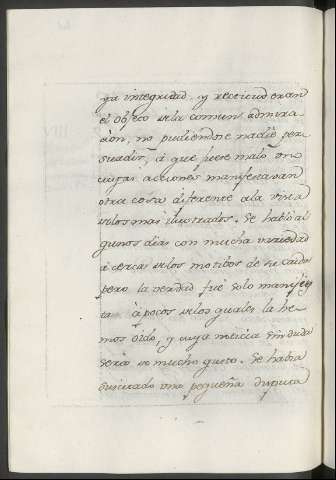 ya integridad, y rectitud eran
el obgeto de la comun admira-
cion, no pudiendose nadie per-
suadir, á que fuese malo un
cuyas acciones manifestavan
otra cosa diferente á la vista
de los mas ilustrados. Se habló al
gunos dias con mucha variedad
á cerca de los motibos de su caida
pero la verdad fué solo manifies
ta á pocos de los quales la he-
mos oido, y cuya noticia sin duda
será de mucho gusto. Se habia
suscitado una pequeña disputa